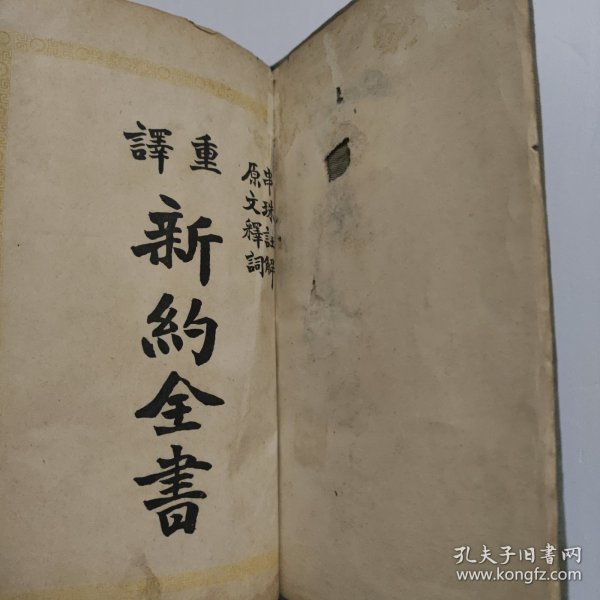 串珠註解
原文釋詞
重譯
新約全書
孔夫子旧书网
www.kongfz.com